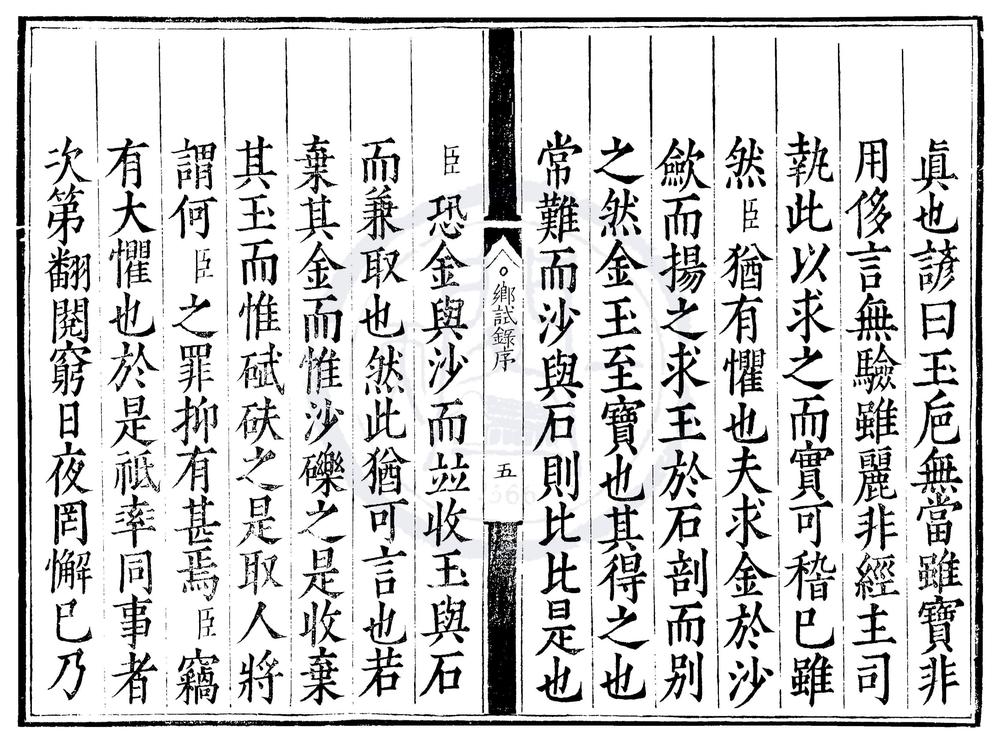 真也諺曰玉巵無當雖寶非
用侈言無驗雖麗非經主司
執此以求之而實可稽巳雖
然臣猶有懼也夫求金於沙
歛而揚之求玉於石剖而别
之然金玉至寶也其得之也
常難而沙與石則比比是也
鄉試錄序
五
臣恐金與沙而並收玉與石
而兼取也然此猶可言也若
棄其金而惟沙礫之是收棄
其玉而惟碔砆之是取人將
謂何臣之罪抑有甚焉臣竊
有大懼也於是祗率同事者
次第翻閱窮日夜罔懈巳乃